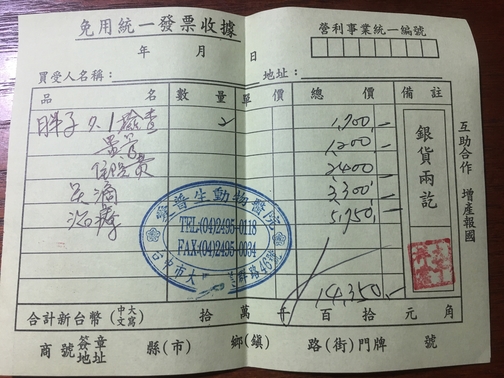 免用統一發票收據
營利事業統一編號
年 月 日
買受人名稱： 地址：
品 名 數量 單價 總價 備註
胖子 9.1檢查 2 1,700
1,200
住院費 2400
點滴 3,300
治療 5,750
銀貨兩訖
互助合作 增產報國
生動物醫院
TEL:(04)2495-0118
FAX:(04)2495-0034
台中市大
14,350
合計新台幣(中文大寫) 拾 萬 仟 百 拾 元 角
商號簽章地址 縣(市) 鄉(鎮) 路(街)門牌 號